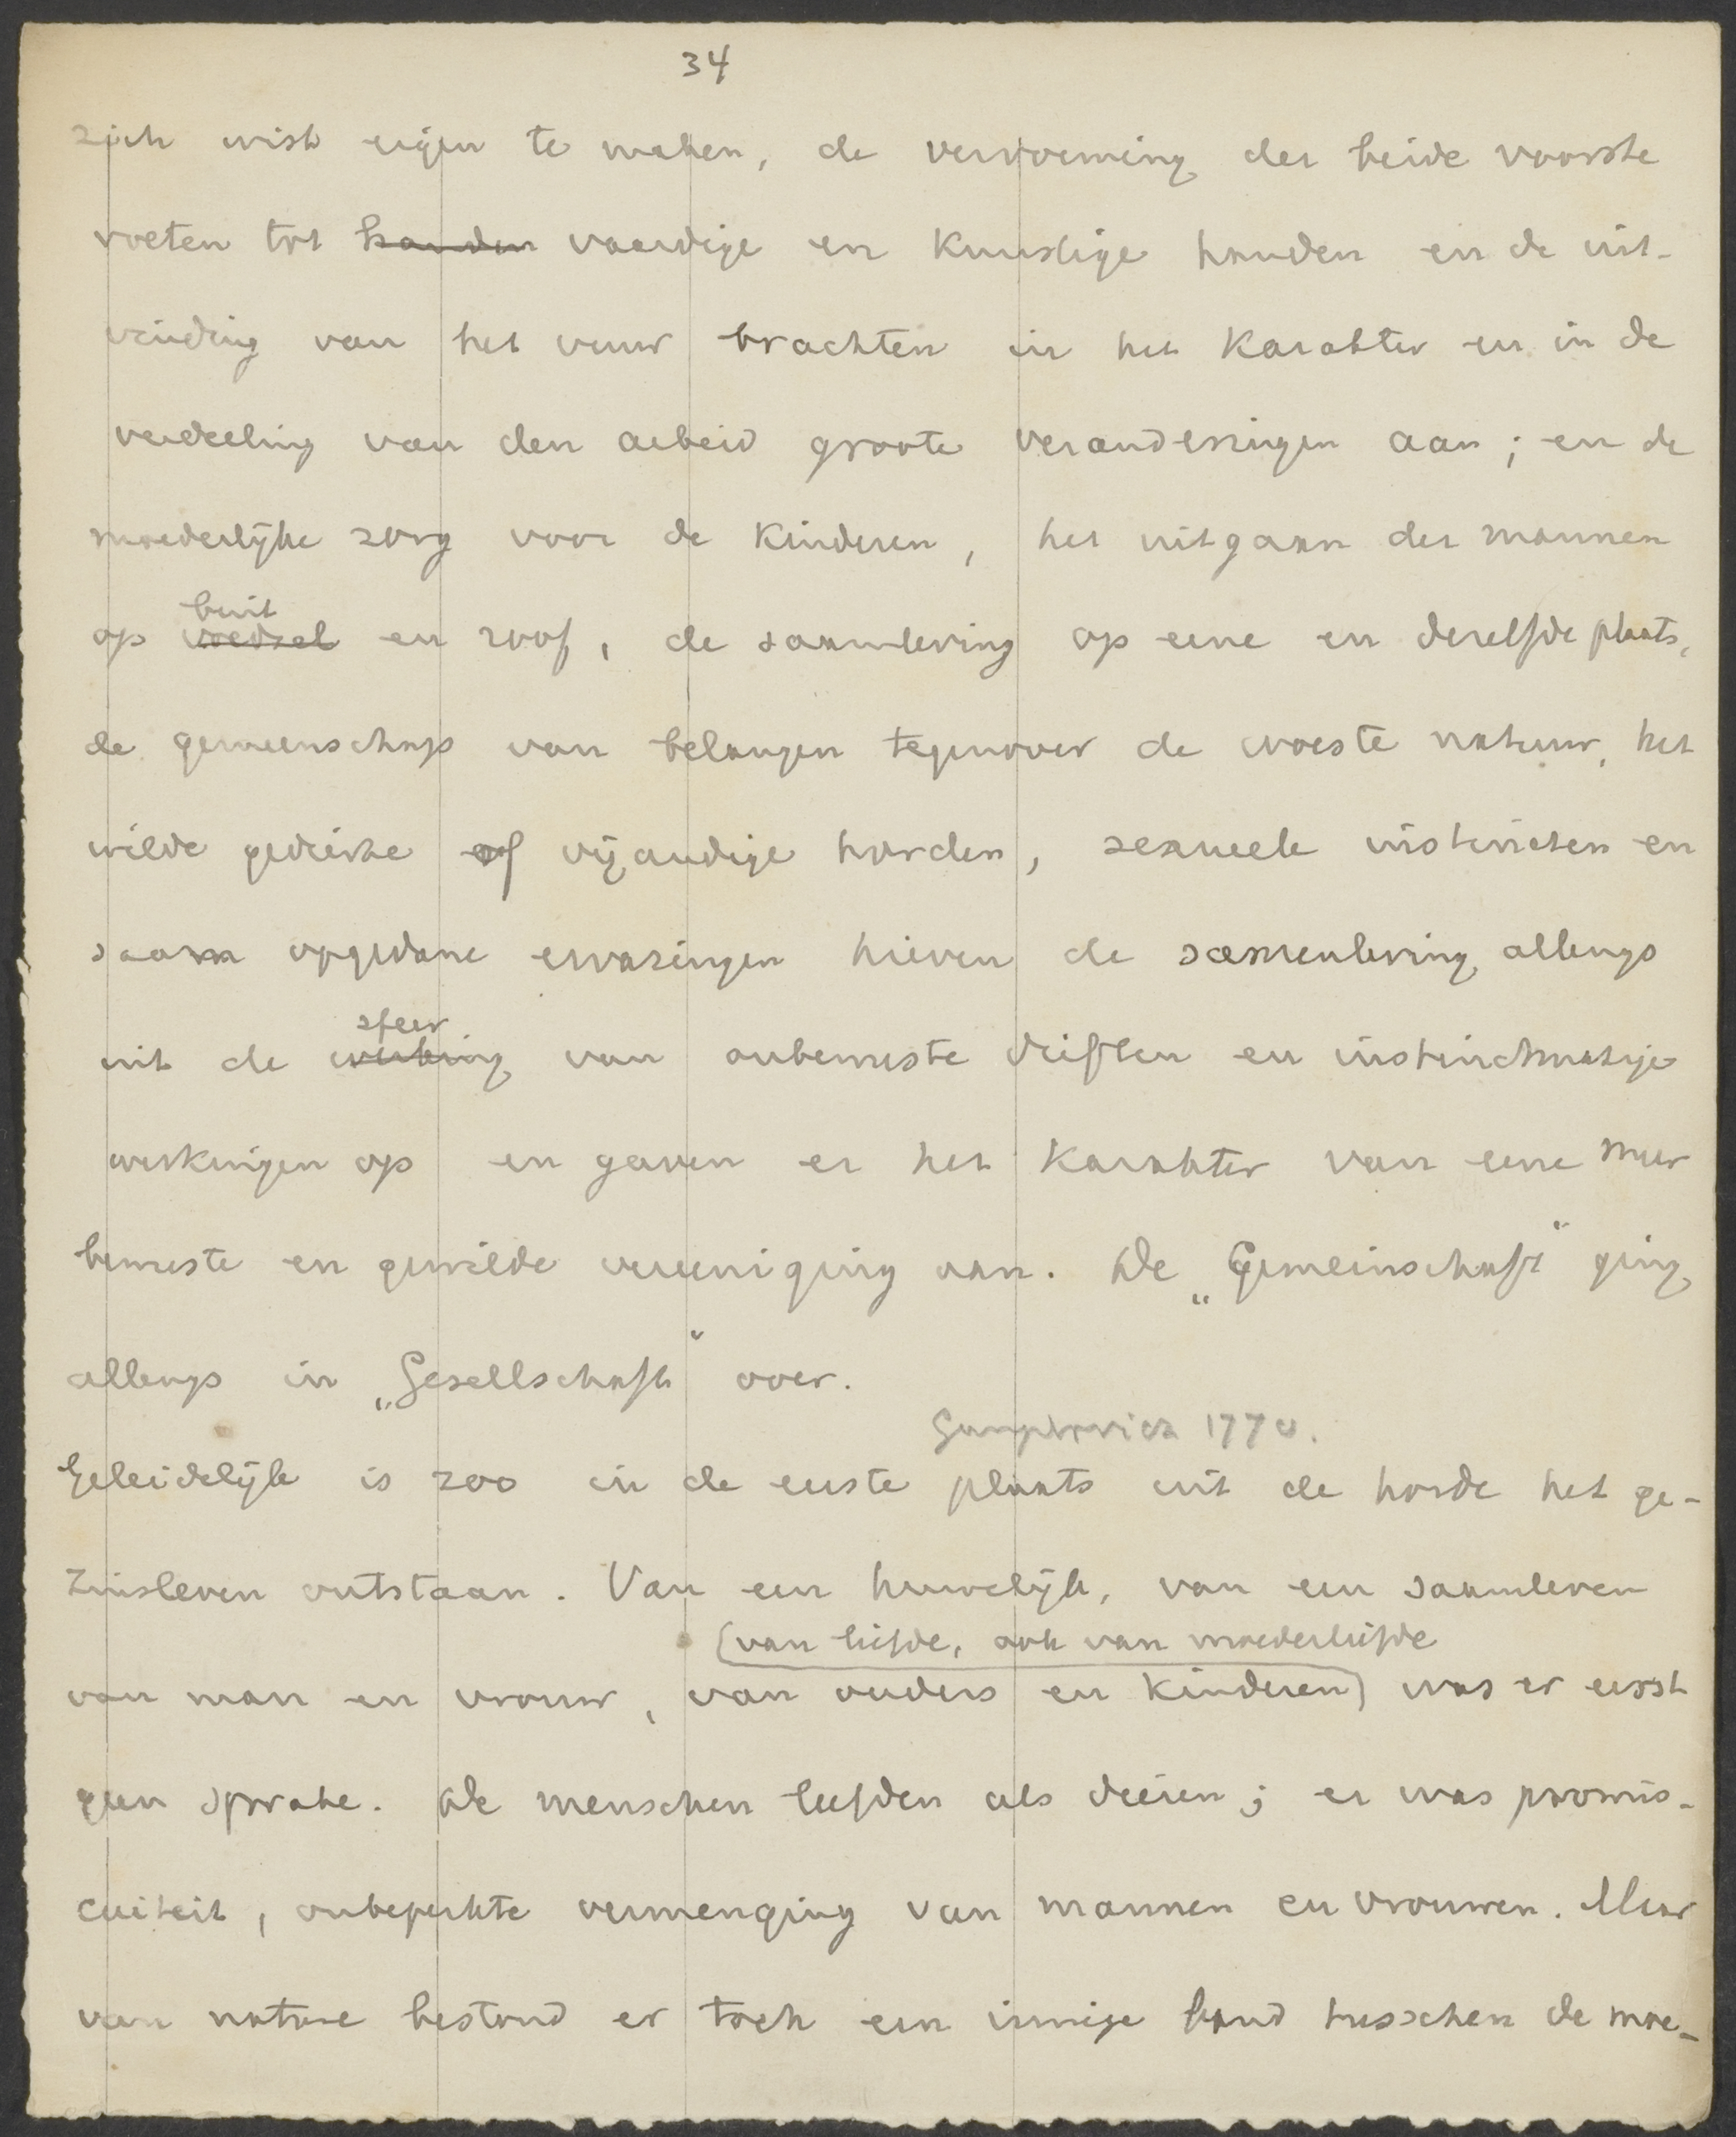 34
zich wist eigen te maken, de vervorming der beide voorste
voeten tot handen vaardige en kunstige handen en de uit-
vinding van het vuur brachten in het karakter en in de
verdeeling van den arbeid groote veranderingen aan; en de
moederlijke zorg voor de kinderen, het uitgaan der mannen
buit
op voedsel en roof, de saamleving op eene en derelfde plaats,
de gemeenschap van belangen tegenover de woeste natuur, het
wilde gedierte of vijandige horden, sexueele instincten en
saam opgedane ervaringen hieven de samenleving allengs
sfeer
uit de werking van onbewuste driften en instinctmatige
werkingen op en gaven er het karakter van eene meer
bewuste en gewilde vereeniging aan. De „Gemeinschaft" ging
allengs in „Gesellschaft" over.
Gumplovicz 177 v.
Geleidelijk is zoo in de eerste plaats uit de horde het ge-
zinsleven ontstaan. Van een huwelijk, van een saamleven
(van liefde, ook van moederliefde
van man en vrouw, van ouders en kinderen) was er eerst
geen sprake. De menschen leefden als dieren; er was promis-
cuiteit, onbeperkte vermenging van mannen en vrouwen. Maar
van nature bestond er toch een innige band tusschen de moe-